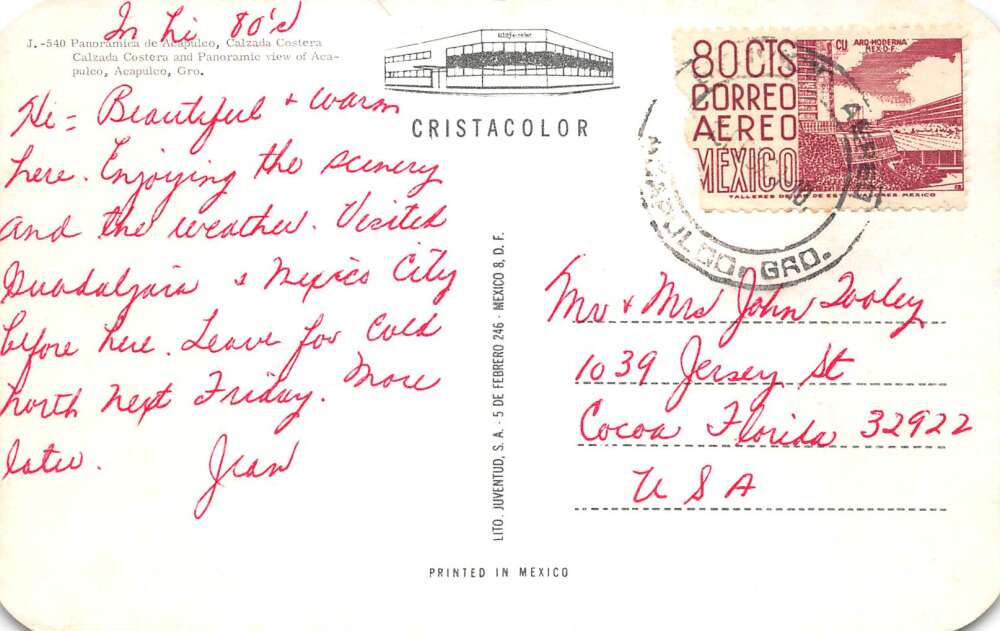 In hi 80's
J.-540 Panorámica de Acapulco, Calzada Costera
Calzada Costera and Panoramic view of Aca-
pulco, Acapulco, Gro.
Hi = Beautiful & warm
here. Enjoying the scenery
and the weather. Visited
Guadaljara & Mexico City
before here. Leave for cold
north next Friday. More
later. Jean
CRISTACOLOR
LITO. JUVENTUD, S. A. - 5 DE FEBRERO 246 - MEXICO 8, D. F.
PRINTED IN MEXICO
80 CTS
CORREO
AEREO
MEXICO
CU ARQ-MODERNA
MEX-D-F.
TALLERES DE
MEXICO
ACAPULCO, GRO.
Mr & Mrs John Tooley
1039 Jersey St
Cocoa Florida 32922
U S A